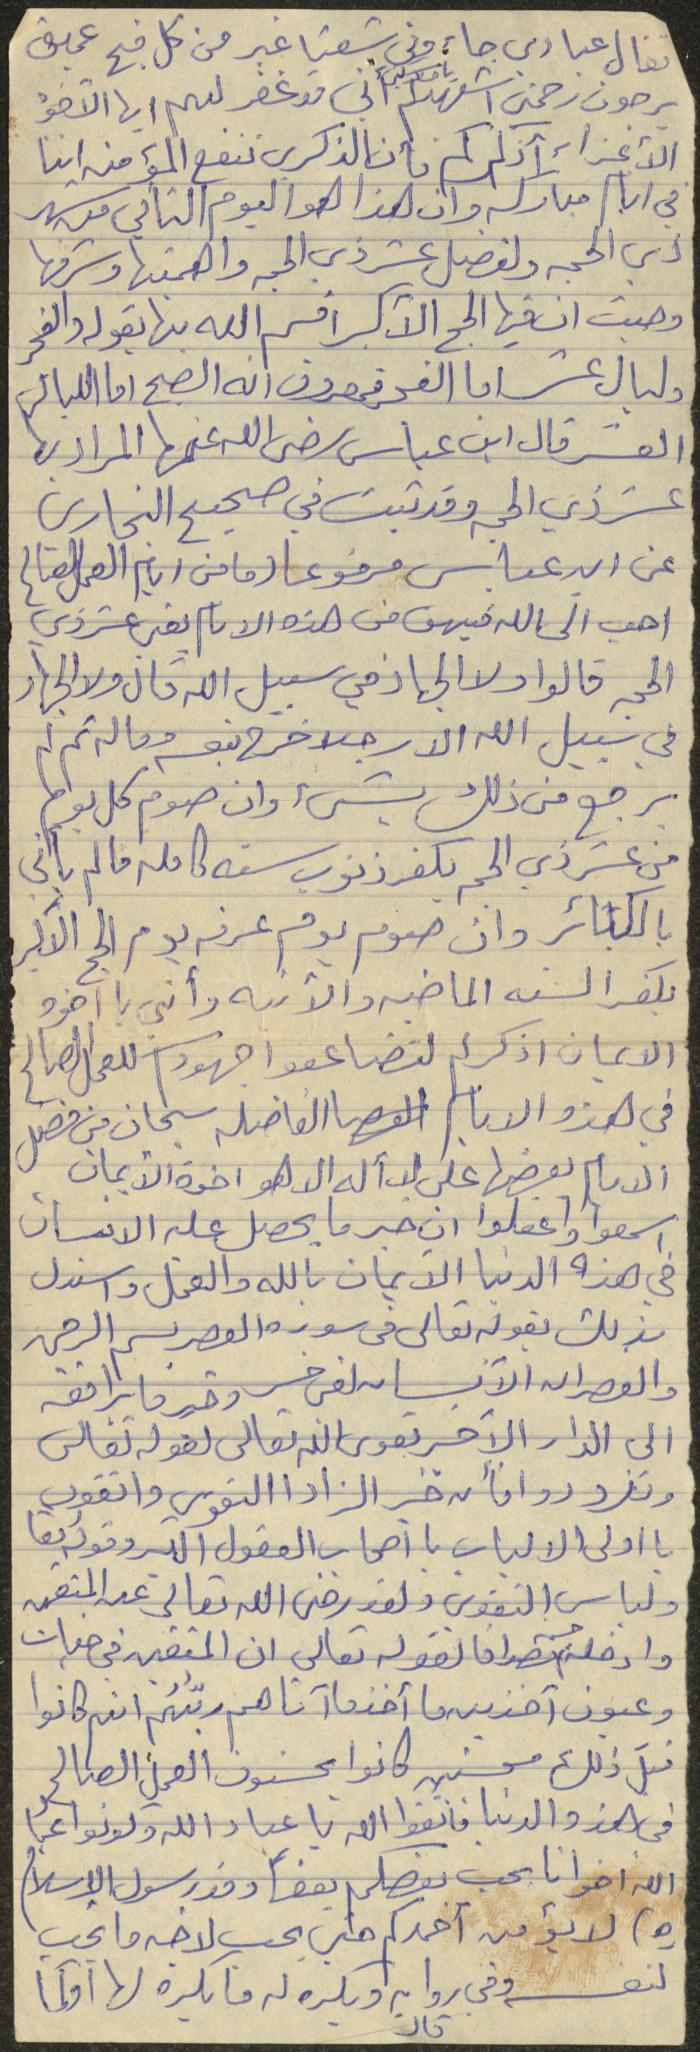 تعال عبادي جاءوني شعثا غبر من كل فج عميق
يرجون رحمتي اشهدكم أني قد غفر لهم ايها الاخوة
الأعزاء أذكركم فأن الذكرى تنفع المؤمنين اننا
في ايام مباركه وان هذا هو اليوم الثاني من شهر
ذي الحجه ولفضل عشر ذي الحجه واهميتها وشرفها
وحيث ان فيها الحج الأكبر أقسم الله بها بقوله والفجر
وليال عشر اما الفجر فمعروف انه الصبح اما الليالي
العشر قال ابن عباس رضى الله عنهما المراد بها
عشر ذي الحجه وقد ثبت في صحيح البخاري
عن ابن عباس مرفوعا (ما من ايام العمل الصالح
احب الى الله فيهن من هذه الايام يعني عشر ذي
الحجه قالوا ولا الجهاد في سبيل الله قال ولا الجهاد
في سبيل الله الا رجلا خرج بنفسه وماله ثم لم
يرجع من ذلك بشىء وان صوم كل يوم
من عشر ذي الحجه يكفر ذنوب سنه كامله مالم يأتي
بالكبائر وان صوم يوم عرفه يوم الحج الأكبر
يكفر السنه الماضيه والأتيه وأنني يا أخوة
الايمان اذكركم لتضاعفوا جهودكم للعمل الصالح
في هذه الايام الفاضله سبحان من فضل
الايام بعضها على لا أله الا هو اخوة الأيمان
اسمعوا واعقلوا ان خير ما يحصل عليه الانسان
في هذه الدنيا الأيمان بالله والعمل واستدل
بذلك بقوله تعالى في سورة العصر بسم الرحمن
والعصر ان الأنسان لفي خسر وخير ما يرافقه
الى الدار الأخر تقوى الله تعالى لقوله تعالى
وتزودوا فأن خير الزاد التقوى واتقون
يا اولى الالباب يا أصحاب العقول وقوله تعا
ولباس التقوى ولقد رضى الله تعالى عن المتقين
وادخلهم لقوله تعالى ان المتقين في جنات
وعيون آخذين ما آتاهم ربّهُم انهم كانوا
قبل ذلك محسنين كانوا يحسنون العمل الصالح
في هذه الدنيا فاتقوا الله يا عباد الله وكونوا عباد
الله اخوانا يحب بعضكم بعضا رسول الاسلام
(ص) لا يؤمن أحدكم حتى يحب لاخيه ما يحب
لنفسه وفي روايه ويكره له ما يكره لها
قال